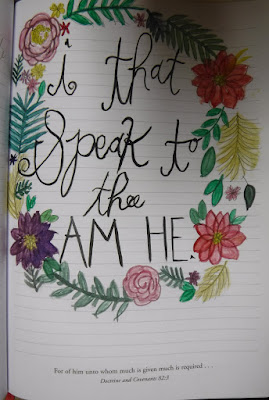 i that
Speak to
thee
AM HE.
For of him unto whom much is given much is required . . .
Doctrine and Covenants 82:3